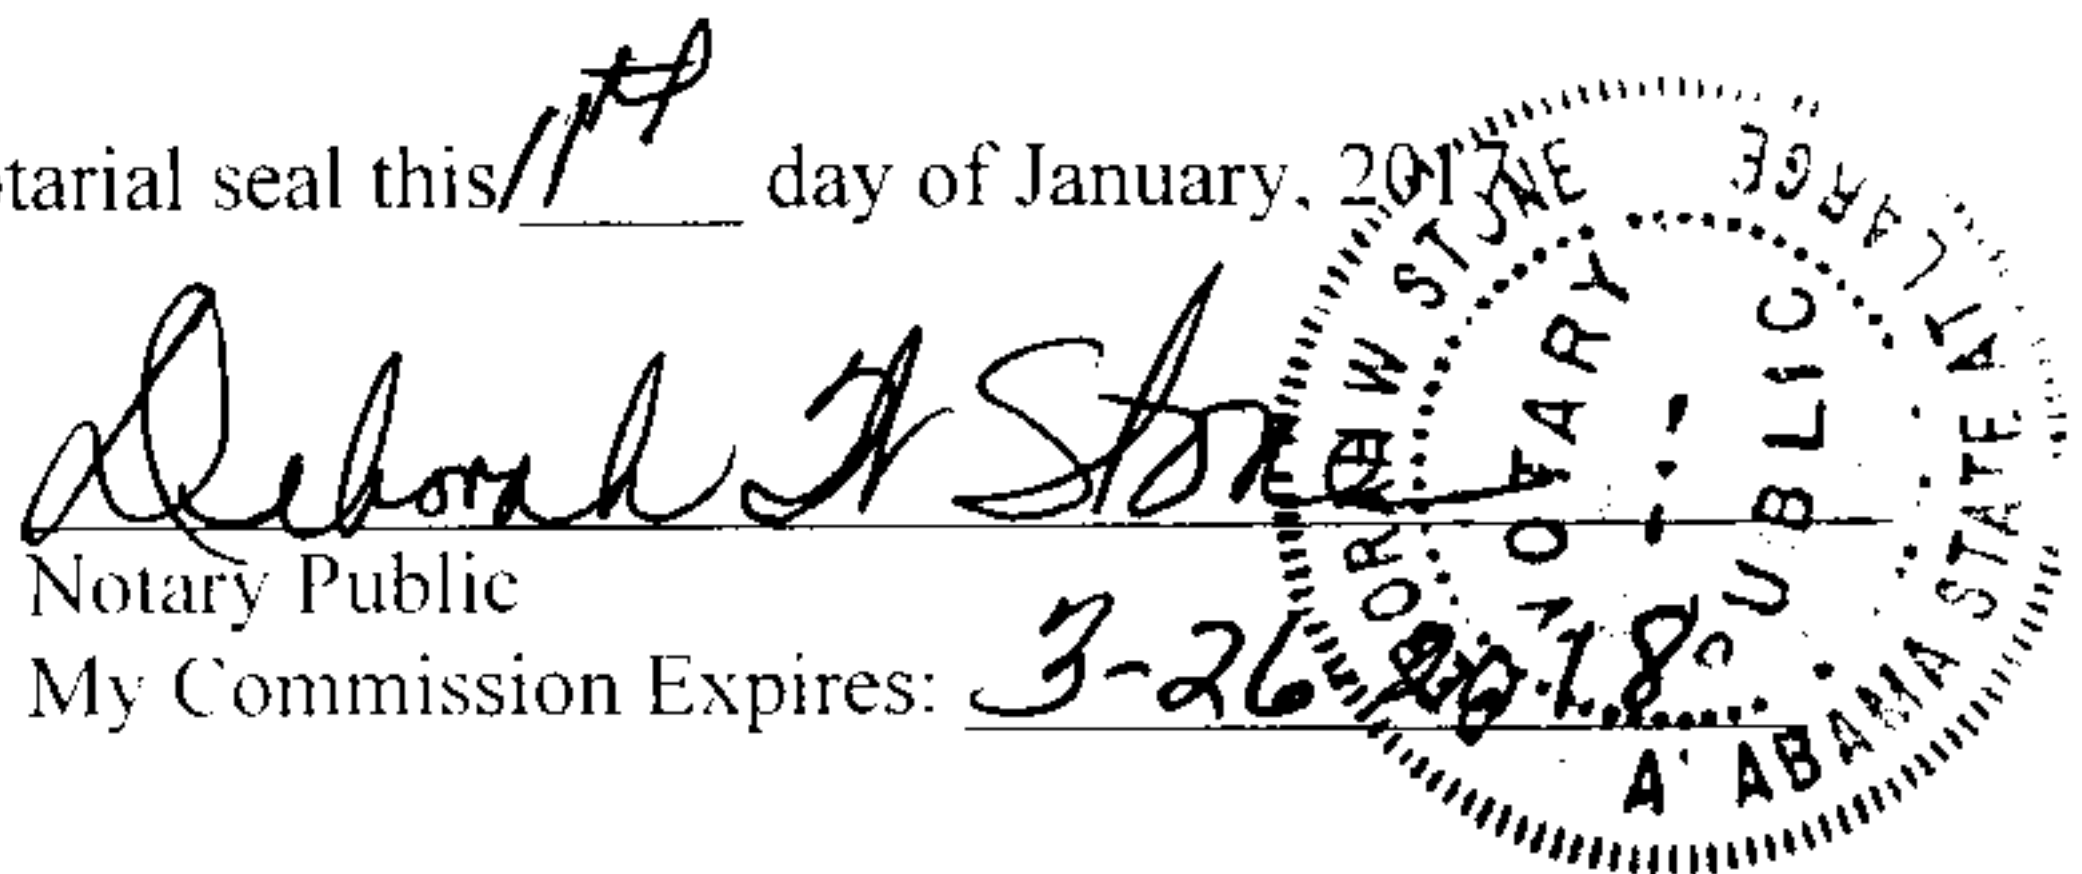 otarial seal this 11th day of January, 2017
Deborah W Stone
Notary Public
My Commission Expires: 3-26-2018
W STONE
NOTARY PUBLIC
ALABAMA STATE AT LARGE